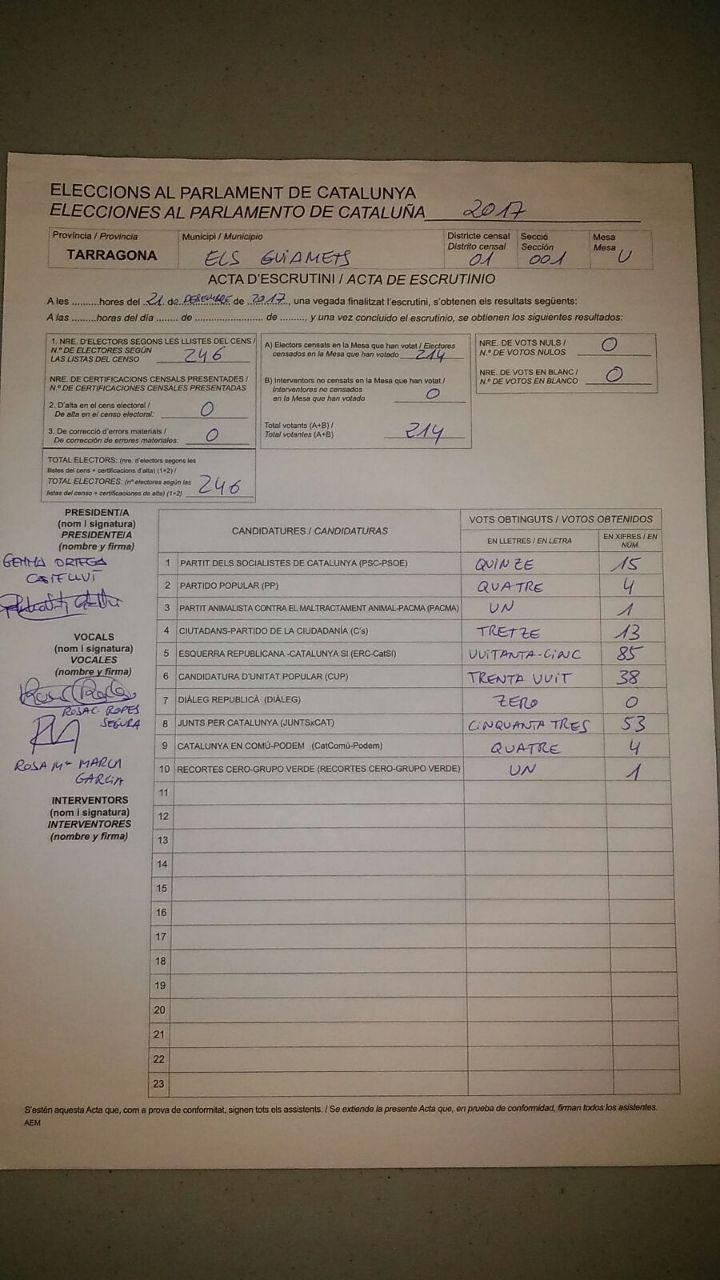 ELECCIONS AL PARLAMENT DE CATALUNYA
ELECCIONES AL PARLAMENTO DE CATALUÑA 2017
Provincia / Provincia Municipi / Municipio Districte censal Distrito censal Secció Sección Mesa Mesa
TARRAGONA ELS GUIAMETS 01 001 U
ACTA D'ESCRUTINI / ACTA DE ESCRUTINIO
A les ..........hores del .21. de DESEMBRE de .2017., una vegada finalitzat l'escrutini, s'obtenen els resultats següents:
A las .........horas del día ........ de ......................... de ........., y una vez concluido el escrutinio, se obtienen los siguientes resultados:
1. NRE. D'ELECTORS SEGONS LES LLISTES DEL CENS /
N.º DE ELECTORES SEGÚN
LAS LISTAS DEL CENSO 246
NRE. DE CERTIFICACIONS CENSALS PRESENTADES /
N.º DE CERTIFICACIONES CENSALES PRESENTADAS
2. D'alta en el cens electoral /
De alta en el censo electoral: 0
3. De correcció d'errors materials /
De corrección de errores materiales: 0
TOTAL ELECTORS: (nre. d'electors segons les
llistes del cens + certificacions d'alta) (1+2) /
TOTAL ELECTORES: (nº electores según las
listas del censo + certificaciones de alta) (1+2) 246
A) Electors censats en la Mesa que han votat / Electores
censados en la Mesa que han votado 214
B) Interventors no censats en la Mesa que han votat /
Interventores no censados
en la Mesa que han votado 0
Total votants (A+B) /
Total votantes (A+B) 214
NRE. DE VOTS NULS /
N.º DE VOTOS NULOS 0
NRE. DE VOTS EN BLANC /
N.º DE VOTOS EN BLANCO 0
PRESIDENT/A
(nom i signatura)
PRESIDENTE/A
(nombre y firma)
GEMMA ORTEGA
CASTELLVÍ
VOCALS
(nom i signatura)
VOCALES
(nombre y firma)
ROSA C. ROPES
SEGURA
ROSA Mª MARCH
GARCIA
INTERVENTORS
(nom i signatura)
INTERVENTORES
(nombre y firma)
CANDIDATURES / CANDIDATURAS VOTS OBTINGUTS / VOTOS OBTENIDOS
EN LLETRES / EN LETRA EN XIFRES / EN NÚM.
1 PARTIT DELS SOCIALISTES DE CATALUNYA (PSC-PSOE) QUINZE 15
2 PARTIDO POPULAR (PP) QUATRE 4
3 PARTIT ANIMALISTA CONTRA EL MALTRACTAMENT ANIMAL-PACMA (PACMA) UN 1
4 CIUTADANS-PARTIDO DE LA CIUDADANÍA (C's) TRETZE 13
5 ESQUERRA REPUBLICANA -CATALUNYA SÍ (ERC-CatSÍ) VUITANTA-CINC 85
6 CANDIDATURA D'UNITAT POPULAR (CUP) TRENTA VUIT 38
7 DIÀLEG REPUBLICÀ (DIÀLEG) ZERO 0
8 JUNTS PER CATALUNYA (JUNTSxCAT) CINQUANTA TRES 53
9 CATALUNYA EN COMÚ-PODEM (CatComú-Podem) QUATRE 4
10 RECORTES CERO-GRUPO VERDE (RECORTES CERO-GRUPO VERDE) UN 1
11
12
13
14
15
16
17
18
19
20
21
22
23
S'estén aquesta Acta que, com a prova de conformitat, signen tots els assistents. / Se extiende la presente Acta que, en prueba de conformidad, firman todos los asistentes.
AEM